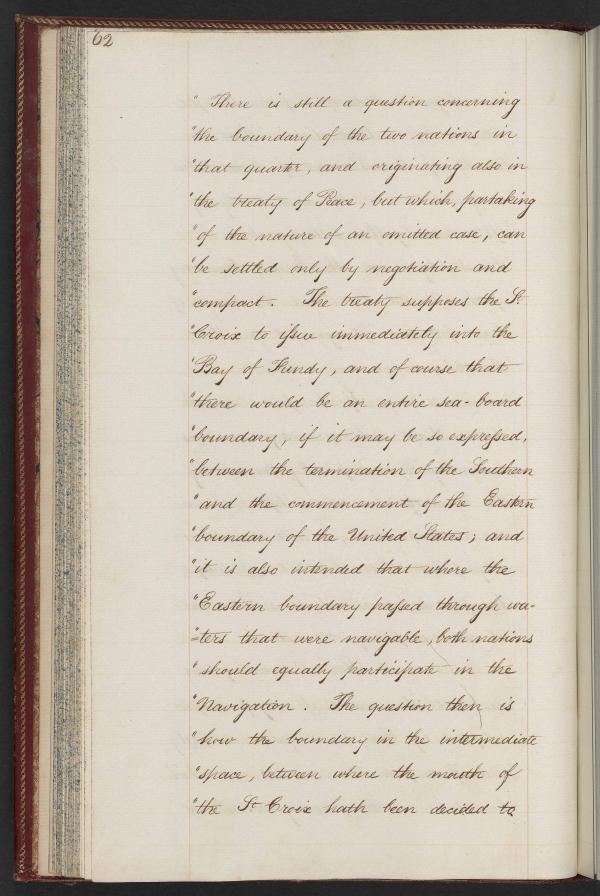 62
"There is still a question concerning
"the boundary of the two nations in
"that quarter, and originating also in
"the treaty of Peace, but which, partaking
"of the nature of an omitted case, can
"be settled only by negotiation and
"compact. The treaty supposes the St.
"Croix to issue immediately into the
"Bay of Fundy, and of course that
"there would be an entire sea-board
"boundary, if it may be so expressed,
"between the termination of the Southern
"and the commencement of the Eastern
"boundary of the United States; and
"it is also intended that where the
"Eastern boundary passed through wa-
"-ters that were navigable, both nations
"should equally participate in the
"Navigation. The question then is
"how the boundary in the intermediate
"space, between where the mouth of
"the St Croix hath been decided to